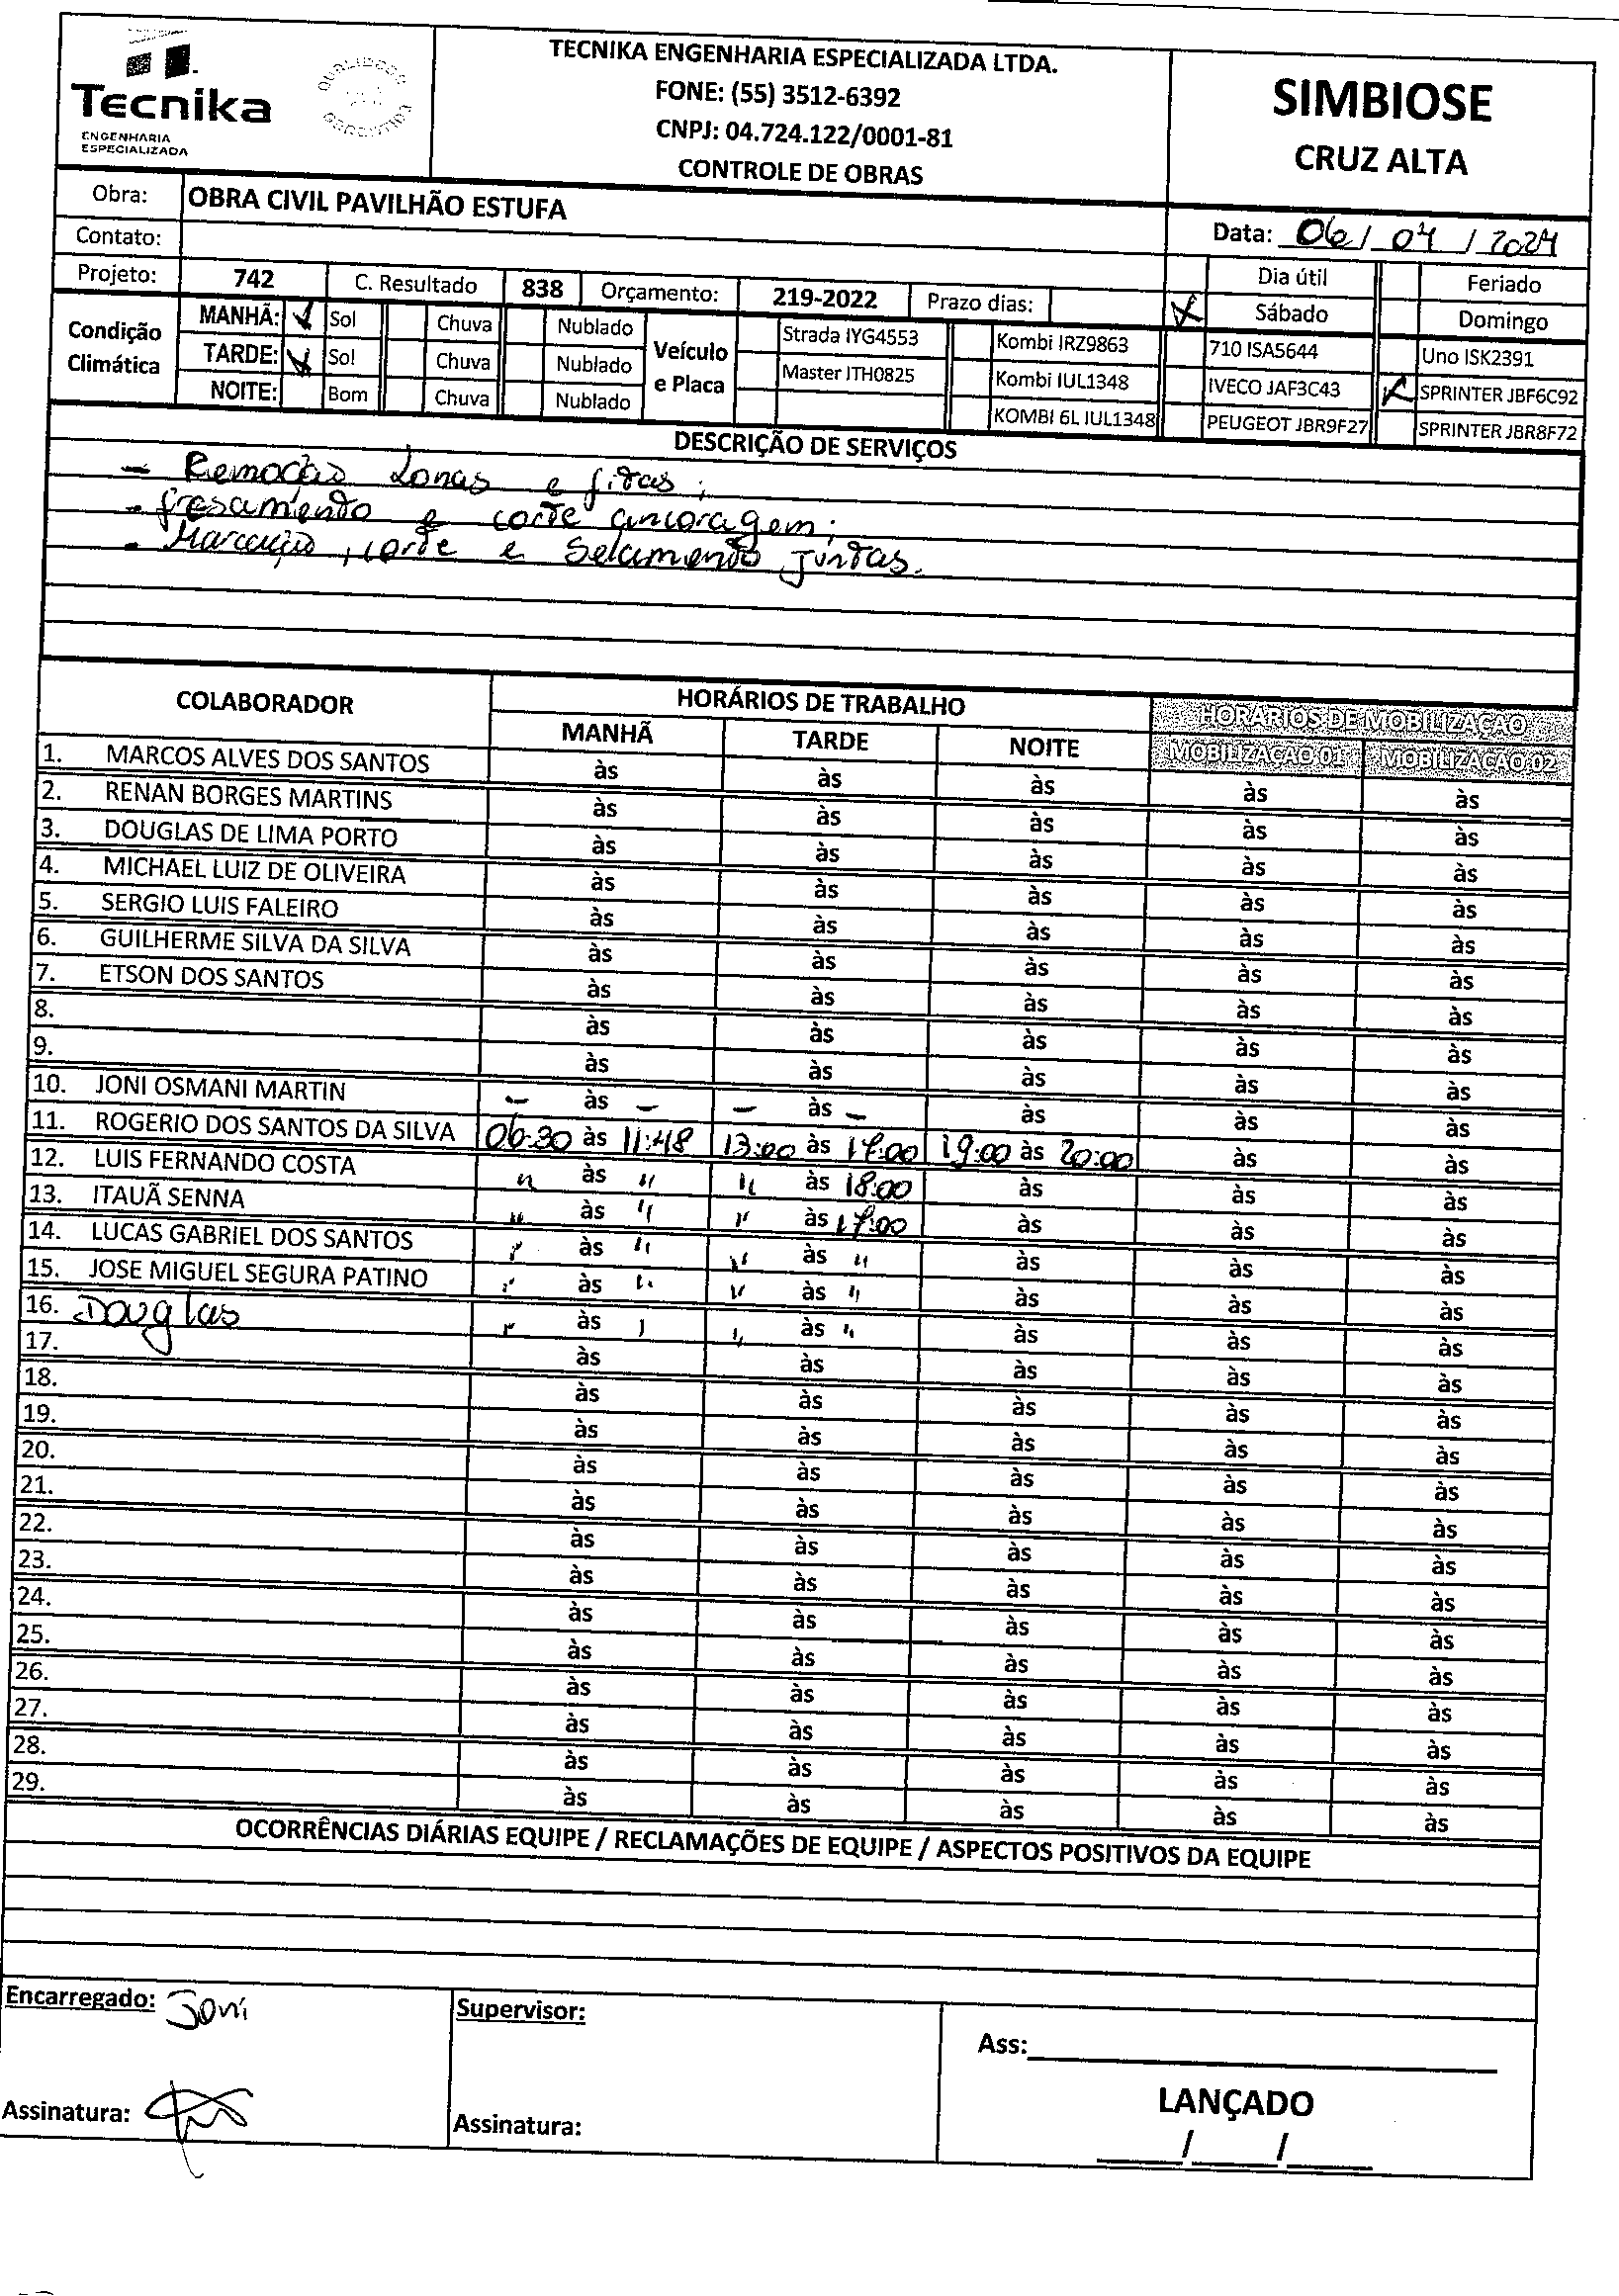 Tecnika
ENGENHARIA
ESPECIALIZADA
QUALIDADE
GARANTIDA
TECNIKA ENGENHARIA ESPECIALIZADA LTDA.
FONE: (55) 3512-6392
CNPJ: 04.724.122/0001-81
CONTROLE DE OBRAS
SIMBIOSE
CRUZ ALTA
Obra: OBRA CIVIL PAVILHÃO ESTUFA
Contato:
Data: 06 / 04 / 2024
Projeto: 742 C. Resultado 838 Orçamento: 219-2022 Prazo dias: Dia útil Feriado
Sábado Domingo
Condição Climática
MANHÃ: Sol Chuva Nublado
TARDE: Sol Chuva Nublado
NOITE: Bom Chuva Nublado
Veículo e Placa
Strada IYG4553 Kombi IRZ9863 710 ISA5644 Uno ISK2391
Master ITH0825 Kombi IUL1348 IVECO JAF3C43 SPRINTER JBF6C92
KOMBI 6L IUL1348 PEUGEOT JBR9F27 SPRINTER JBR8F72
DESCRIÇÃO DE SERVIÇOS
- Remoção Lonas e fitas;
- fresamento e corte ancoragem;
- Marcação, corte e Selamento Juntas.
COLABORADOR HORÁRIOS DE TRABALHO HORÁRIOS DE MOBILIZAÇÃO
MANHÃ TARDE NOITE MOBILIZAÇÃO 01 MOBILIZAÇÃO 02
1. MARCOS ALVES DOS SANTOS às às às às às
2. RENAN BORGES MARTINS às às às às às
3. DOUGLAS DE LIMA PORTO às às às às às
4. MICHAEL LUIZ DE OLIVEIRA às às às às às
5. SERGIO LUIS FALEIRO às às às às às
6. GUILHERME SILVA DA SILVA às às às às às
7. ETSON DOS SANTOS às às às às às
8. às às às às às
9. às às às às às
10. JONI OSMANI MARTIN - às - - às - às às às
11. ROGERIO DOS SANTOS DA SILVA 06:30 às 11:48 13:00 às 17:00 19:00 às 20:00 às às
12. LUIS FERNANDO COSTA " às " " às 18:00 às às às
13. ITAUÃ SENNA " às " " às 17:00 às às às
14. LUCAS GABRIEL DOS SANTOS " às " " às " às às às
15. JOSE MIGUEL SEGURA PATINO " às " " às " às às às
16. Douglas " às " " às " às às às
17. às às às às às
18. às às às às às
19. às às às às às
20. às às às às às
21. às às às às às
22. às às às às às
23. às às às às às
24. às às às às às
25. às às às às às
26. às às às às às
27. às às às às às
28. às às às às às
29. às às às às às
OCORRÊNCIAS DIÁRIAS EQUIPE / RECLAMAÇÕES DE EQUIPE / ASPECTOS POSITIVOS DA EQUIPE
Encarregado: Joni
Supervisor:
Ass:
LANÇADO
Assinatura:
Assinatura:
/ /